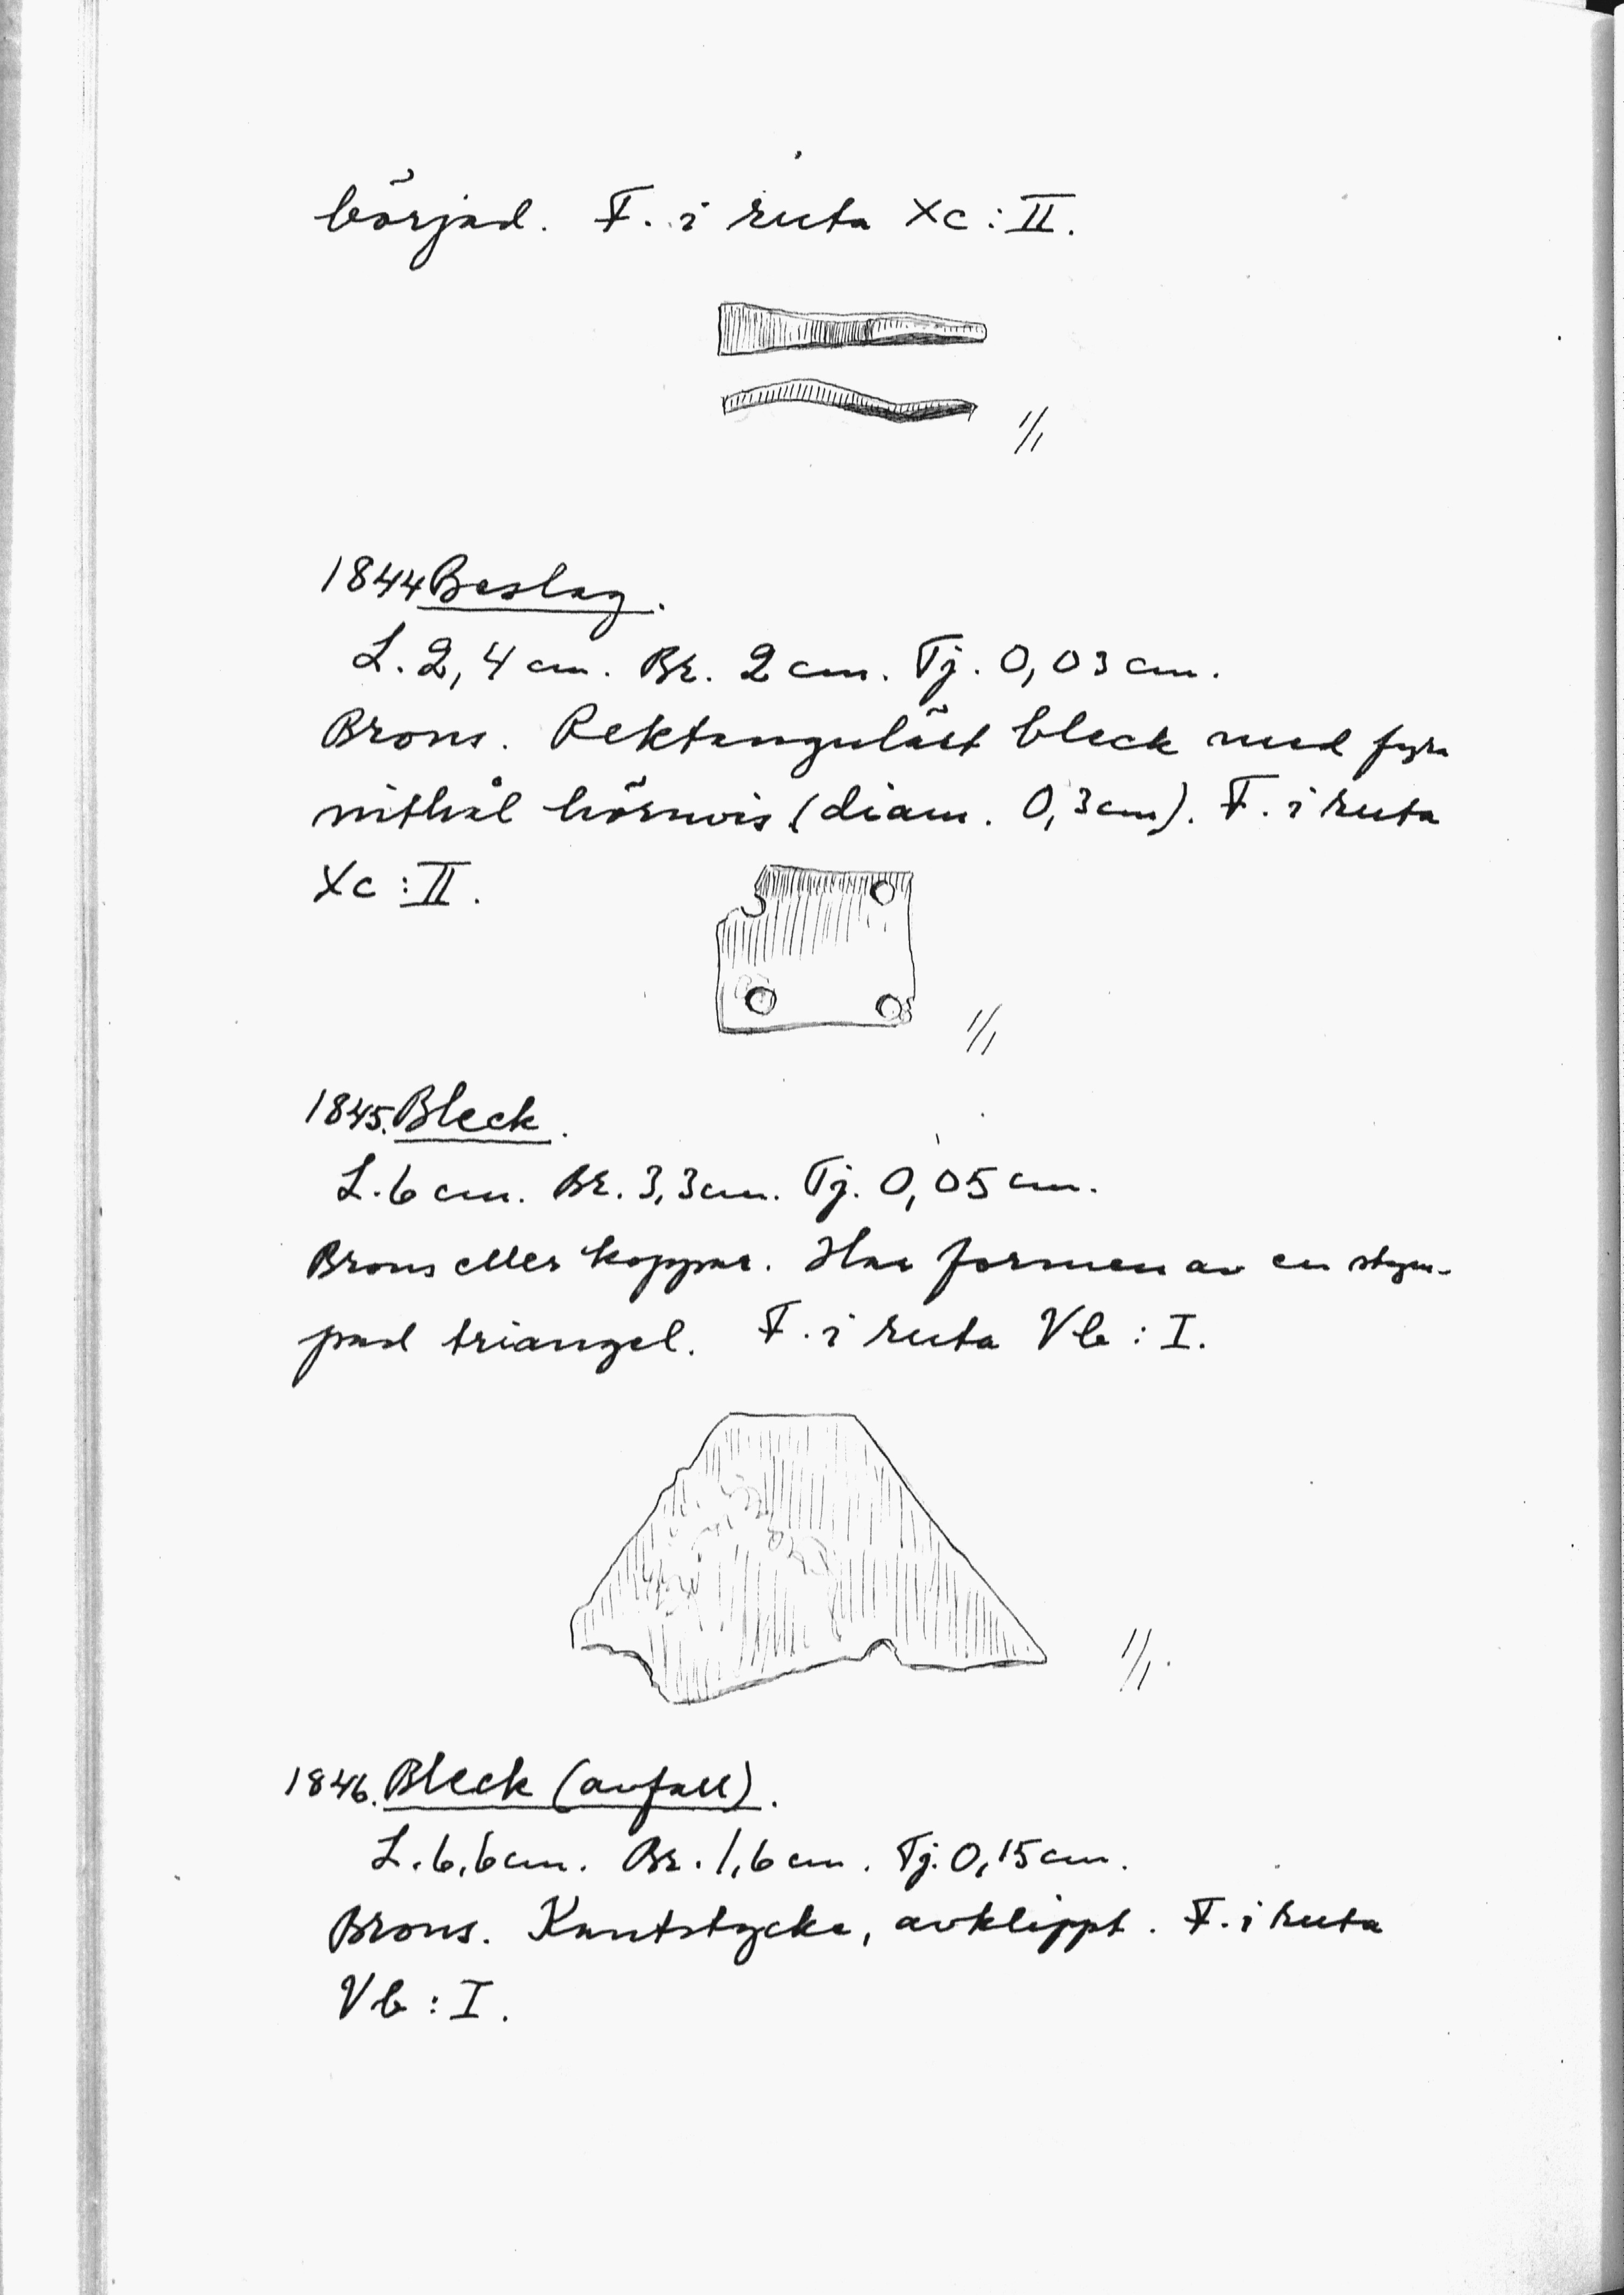 börjad. F. i ruta Xc : II.
1/1
1844 Beslag.
L. 2,4 cm. Br. 2 cm. Tj. 0,03 cm.
Brons. Rektangulärt bleck med fyra
nithål hörnvis (diam. 0,3 cm). F. i ruta
Xc : II.
1/1
1845. Bleck.
L. 6 cm. Br. 3,3 cm. Tj. 0,05 cm.
Brons eller koppar. Har formen av en stym-
pad triangel. F. i ruta Vb : I.
1/1.
1846. Bleck (avfall).
L. 6,6 cm. Br. 1,6 cm. Tj. 0,15 cm.
Brons. Kantstycke, avklippt. F. i ruta
Vb : I.